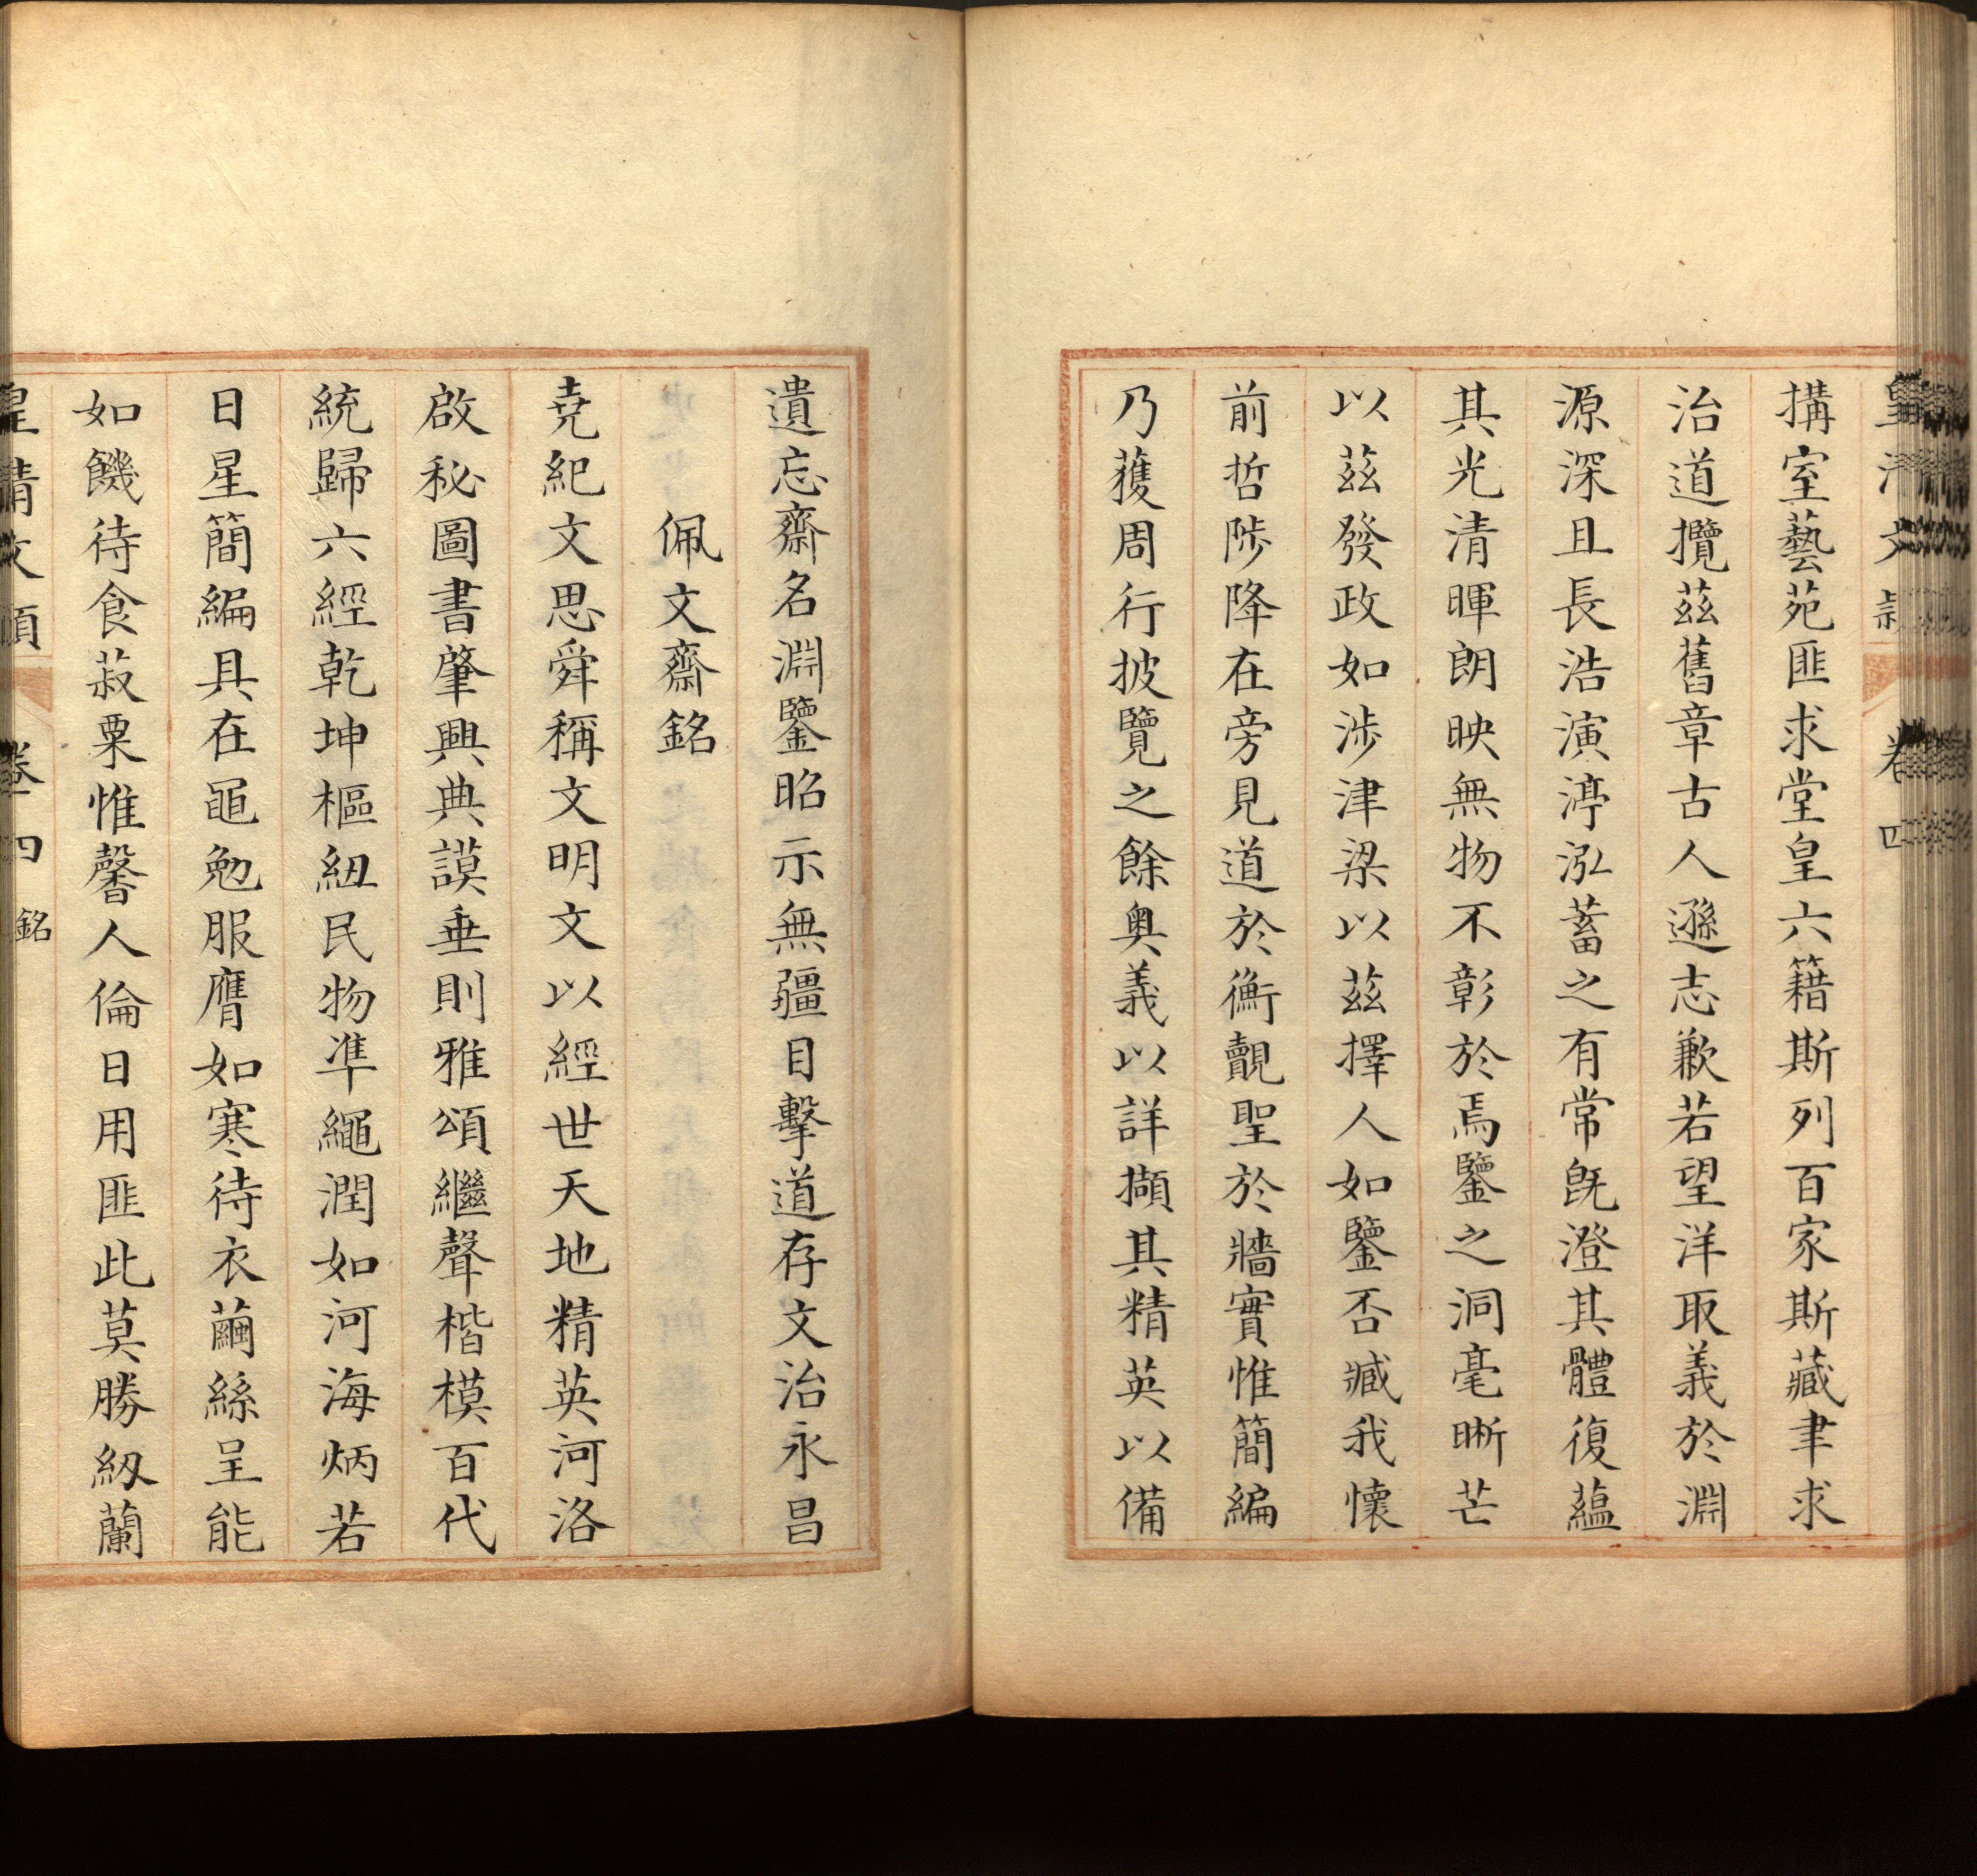 皇清文穎 卷四
搆室藝苑匪求堂皇六籍斯列百家斯藏聿求
治道攬茲舊章古人遜志歉若望洋取義於淵
源深且長浩演渟泓蓄之有常旣澄其體復蘊
其光清暉朗映無物不彰於焉鑒之洞毫晰芒
以茲發政如涉津梁以茲擇人如鑒否臧我懷
前哲陟降在旁見道於衡覿聖於牆實惟簡編
乃獲周行披覽之餘奧義以詳擷其精英以備
遺忘齋名淵鑒昭示無疆目擊道存文治永昌
佩文齋銘
堯紀文思舜稱文明文以經世天地精英河洛
啟秘圖書肇興典謨垂則雅頌繼聲楷模百代
統歸六經乾坤樞紐民物準繩潤如河海炳若
日星簡編具在黽勉服膺如寒待衣繭絲呈能
如饑待食菽粟惟馨人倫日用匪此莫勝紉蘭
皇清文穎 卷四 銘